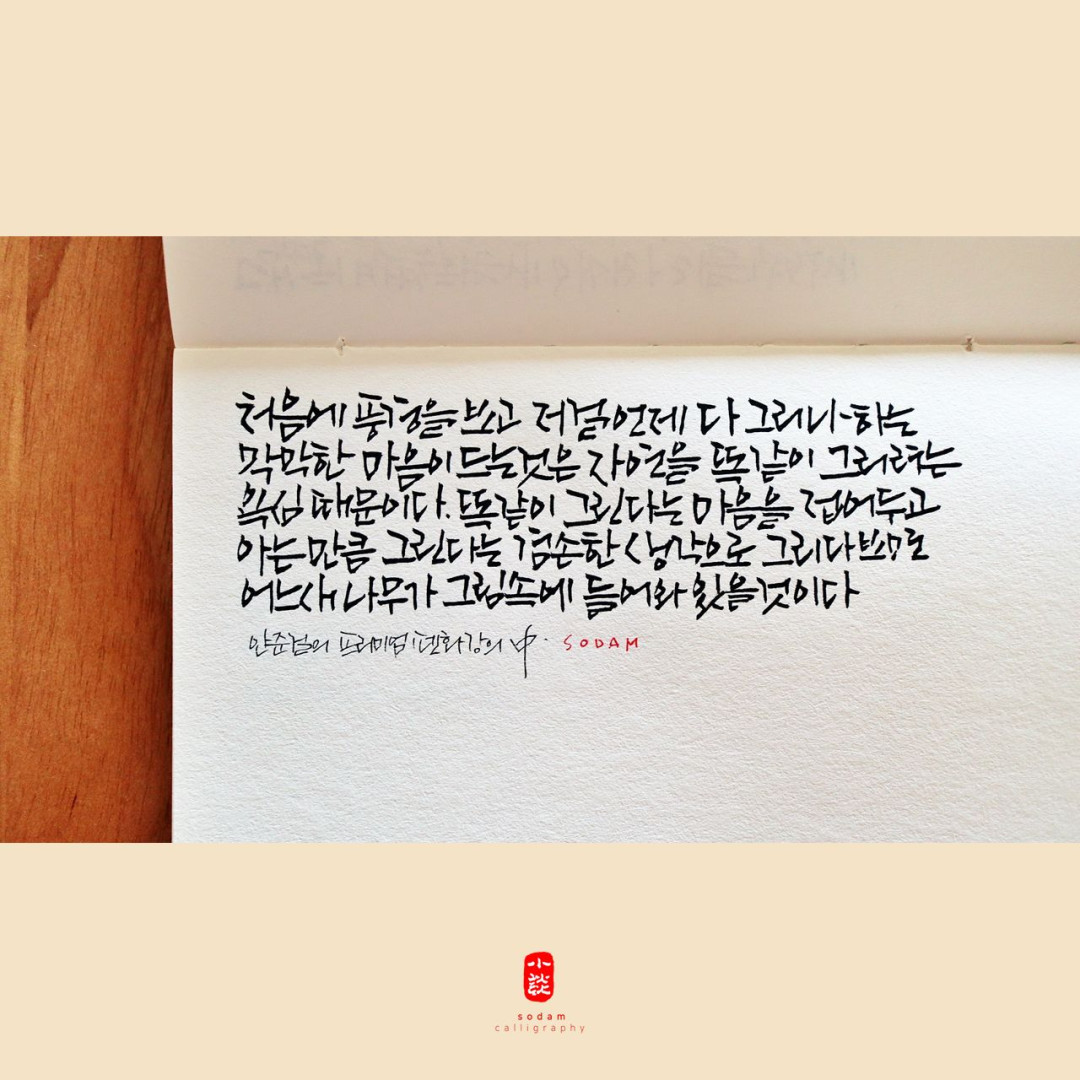 처음에 풍경을 보고 저걸 언제 다 그리나 하는
막막한 마음이 드는것은 자연을 똑같이 그리려는
욕심 때문이다. 똑같이 그린다는 마음을 접어두고
아는 만큼 그린다는 겸손한 생각으로 그리다보면
어느새 나무가 그림속에 들어와 있을것이다
안준걸의 프리미엄 펜화강의 中. SODAM
小談
sodam
calligraphy